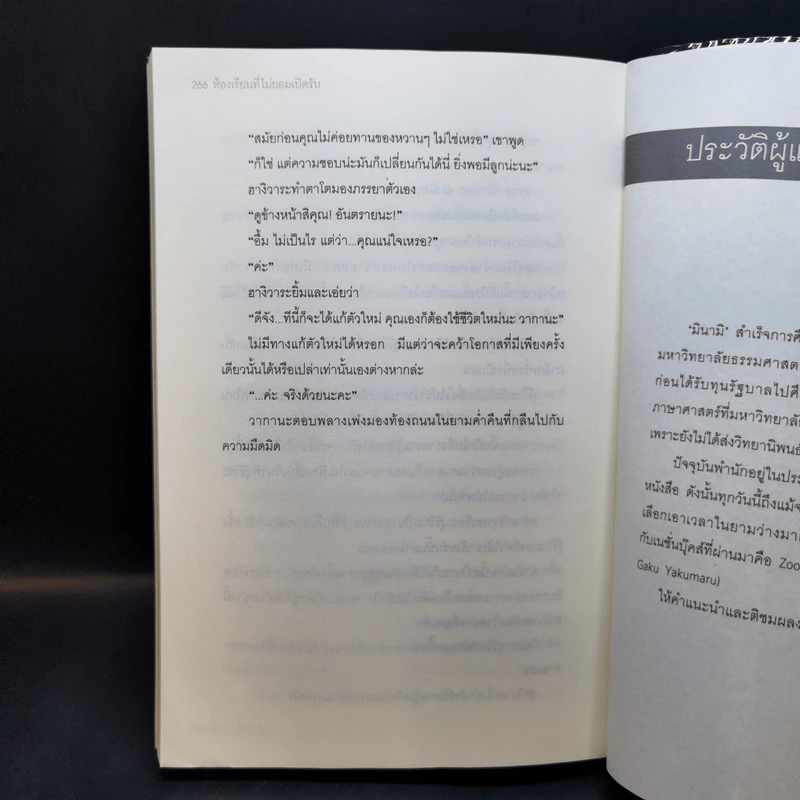 266 ห้องเรียนที่ไม่ยอมเปิดรับ
“สมัยก่อนคุณไม่ค่อยทานของหวานๆ ไม่ใช่เหรอ” เขาพูด
“ก็ใช่ แต่ความชอบน่ะมันก็เปลี่ยนกันได้นี่ ยิ่งพอมีลูกน่ะนะ”
ฮางิวาระทำตาโตมองภรรยาตัวเอง
“ดูข้างหน้าสิคุณ! อันตรายนะ!”
“อื้ม ไม่เป็นไร แต่ว่า...คุณแน่ใจเหรอ?”
“ค่ะ”
ฮางิวาระยิ้มและเอ่ยว่า
“ดีจัง...ทีนี้ก็จะได้แก้ตัวใหม่ คุณเองก็ต้องใช้ชีวิตใหม่นะ วากานะ”
ไม่มีทางแก้ตัวใหม่ได้หรอก มีแต่ว่าจะคว้าโอกาสที่มีเพียงครั้ง
เดียวนั้นได้หรือเปล่าเท่านั้นเองต่างหากล่ะ
“...ค่ะ จริงด้วยนะคะ”
วากานะตอบพลางเพ่งมองท้องถนนในยามค่ำคืนที่กลืนไปกับ
ความมืดมิด
ประวัติผู้แ
‘มินามิ’ สำเร็จการศึ
มหาวิทยาลัยธรรมศาสต
ก่อนได้รับทุนรัฐบาลไปศึ
ภาษาศาสตร์ที่มหาวิทยาลั
เพราะยังไม่ได้ส่งวิทยานิพนธ์
ปัจจุบันพำนักอยู่ในประ
หนังสือ ดังนั้นทุกวันนี้ถึงแม้จ
เลือกเอาเวลาในยามว่างมา
กับเนชั่นบุ๊คส์ที่ผ่านมาคือ Zoo
Gaku Yakumaru)
ให้คำแนะนำและติชมผลง